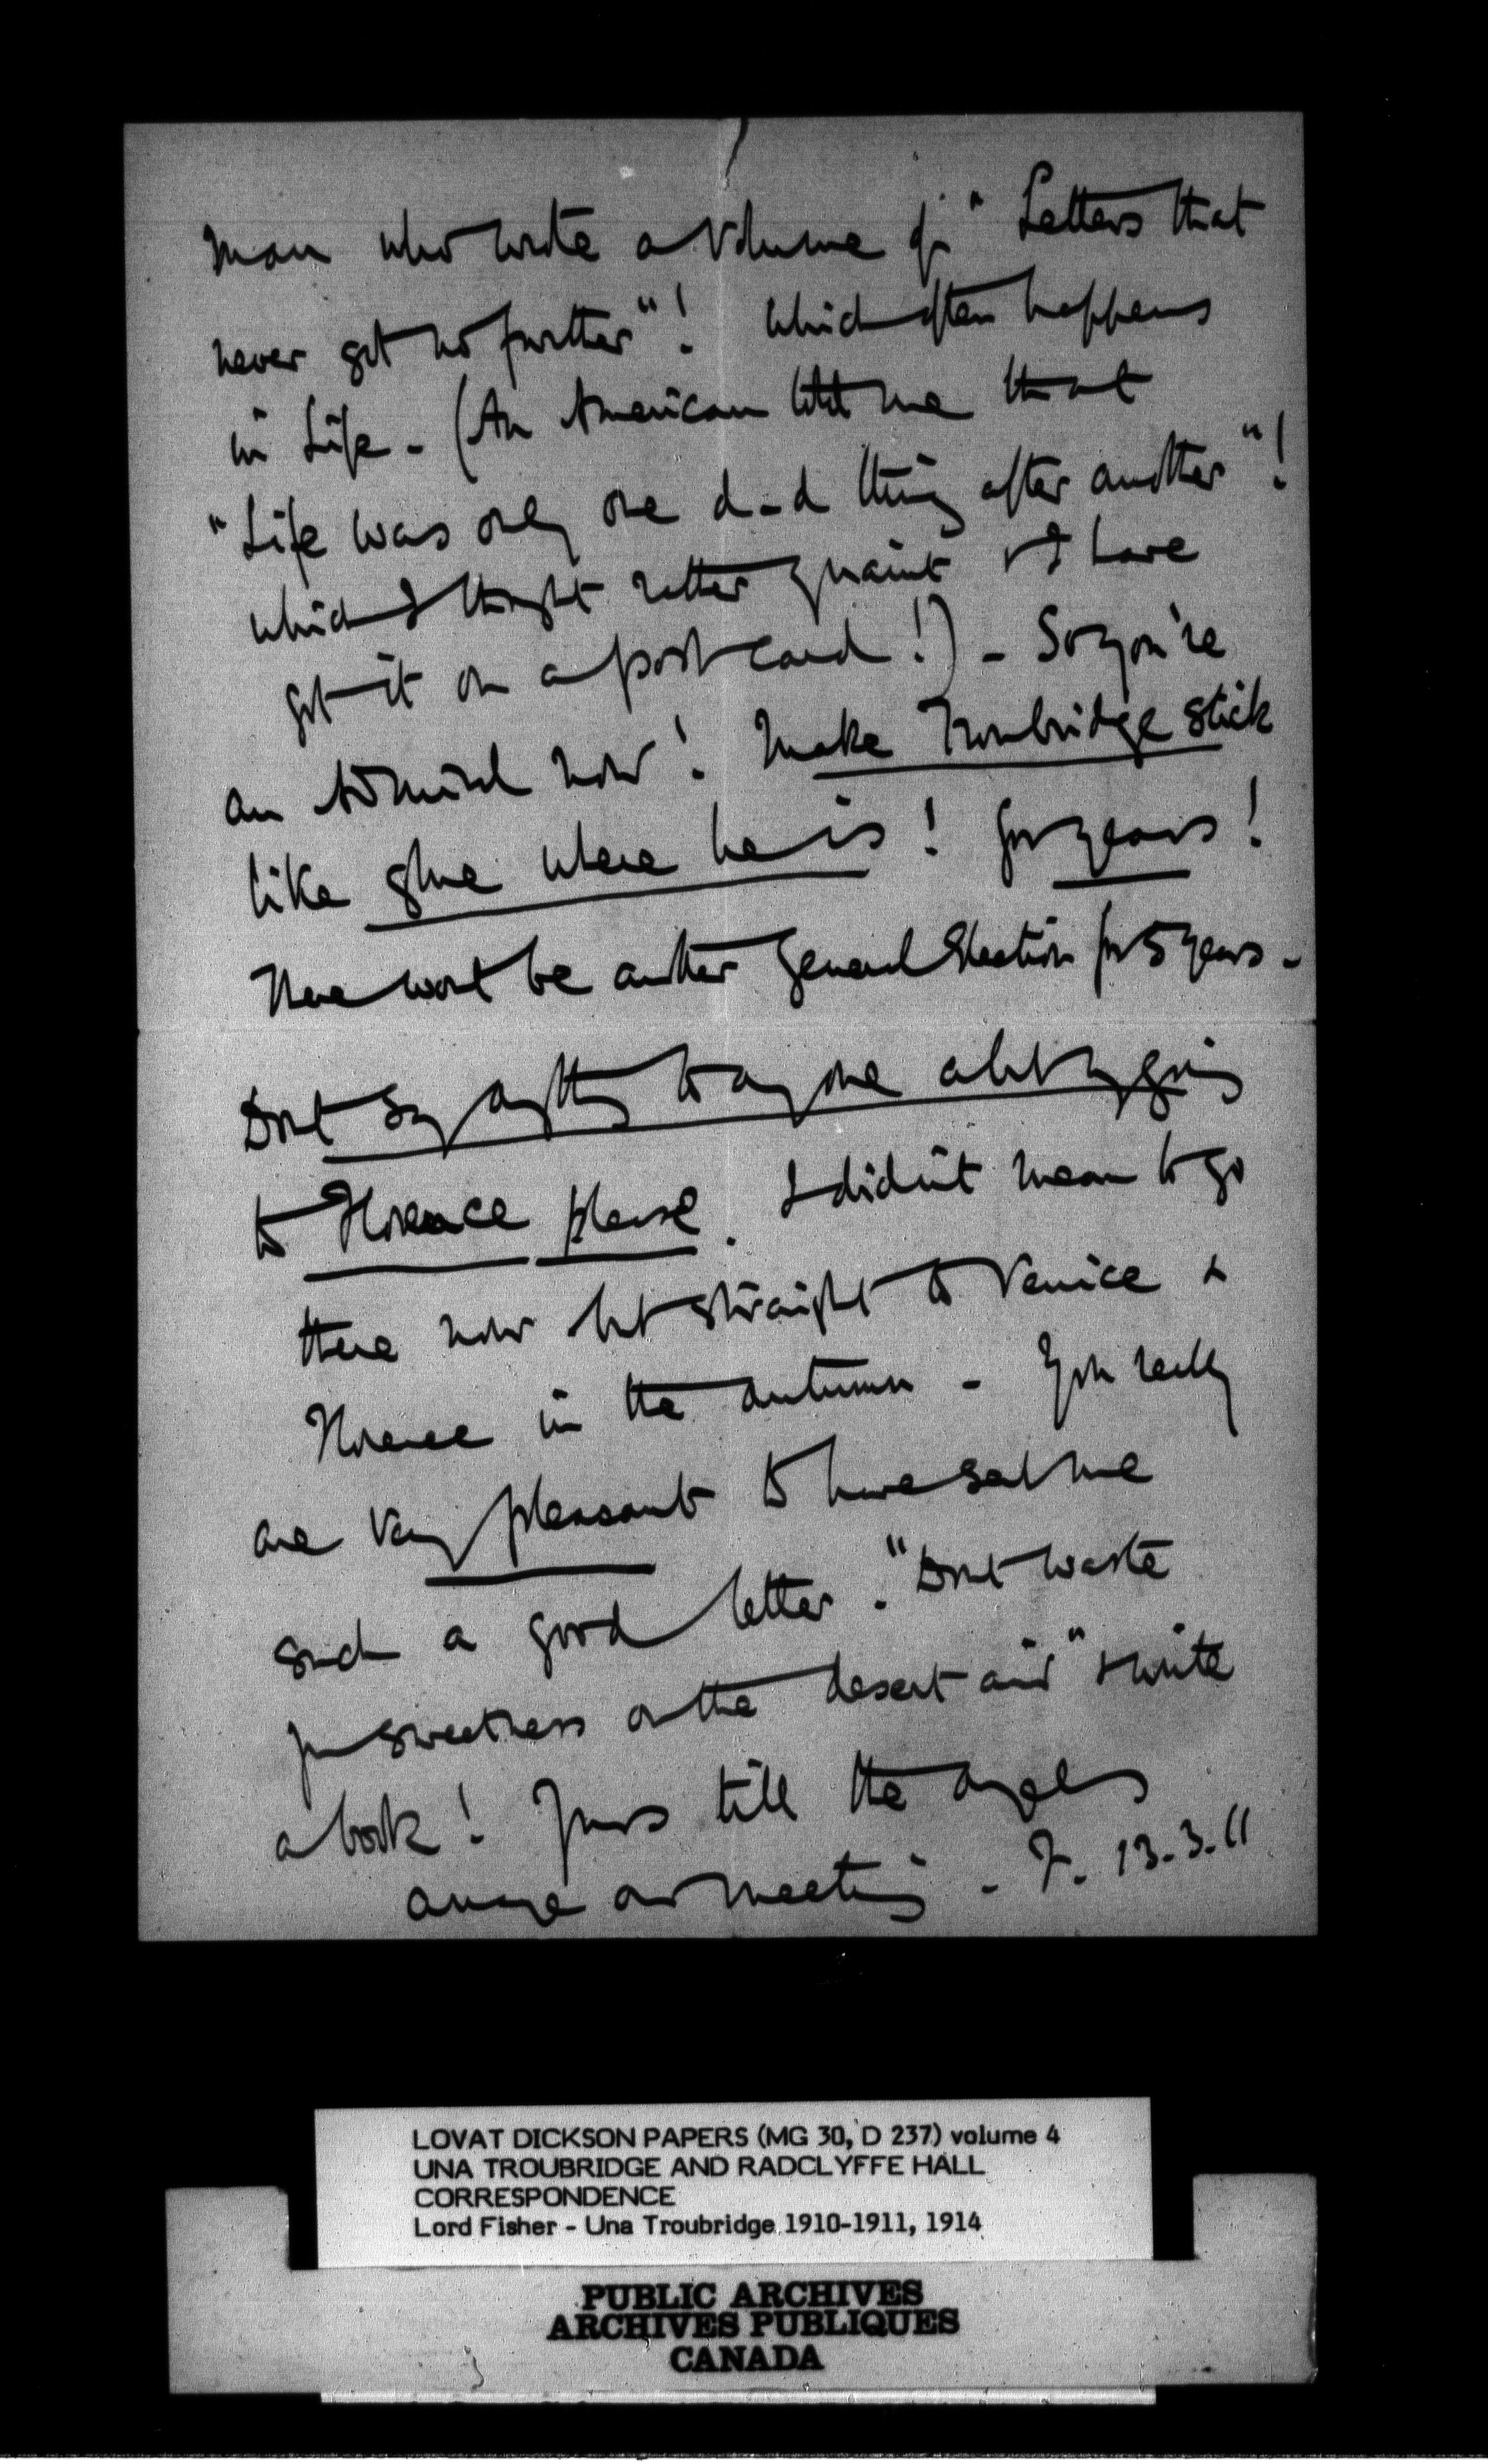 man who wrote a volume of "Letters that
never got no further"! which often happens
in Life - (An American told me that
"Life was only one d-d thing after another"!
which I thought rather quaint & I have
got it on a post card!) - So you're
an Admiral now! Make Troubridge stick
like glue where he is! for years!
There wont be another General Election for 5 years -
Dont say anything to anyone about my going
to Florence please. I didn't mean to go
there now but straight to Venice &
Florence in the autumn - You really
are very pleasant to have sent me
such a good letter. "Dont waste
your sweetness on the desert air" & write
a book! Yours till the angels
arrange our meeting - F. 13.3.11
LOVAT DICKSON PAPERS (MG 30, D 237) volume 4
UNA TROUBRIDGE AND RADCLYFFE HALL
CORRESPONDENCE
Lord Fisher - Una Troubridge 1910-1911, 1914
PUBLIC ARCHIVES
ARCHIVES PUBLIQUES
CANADA